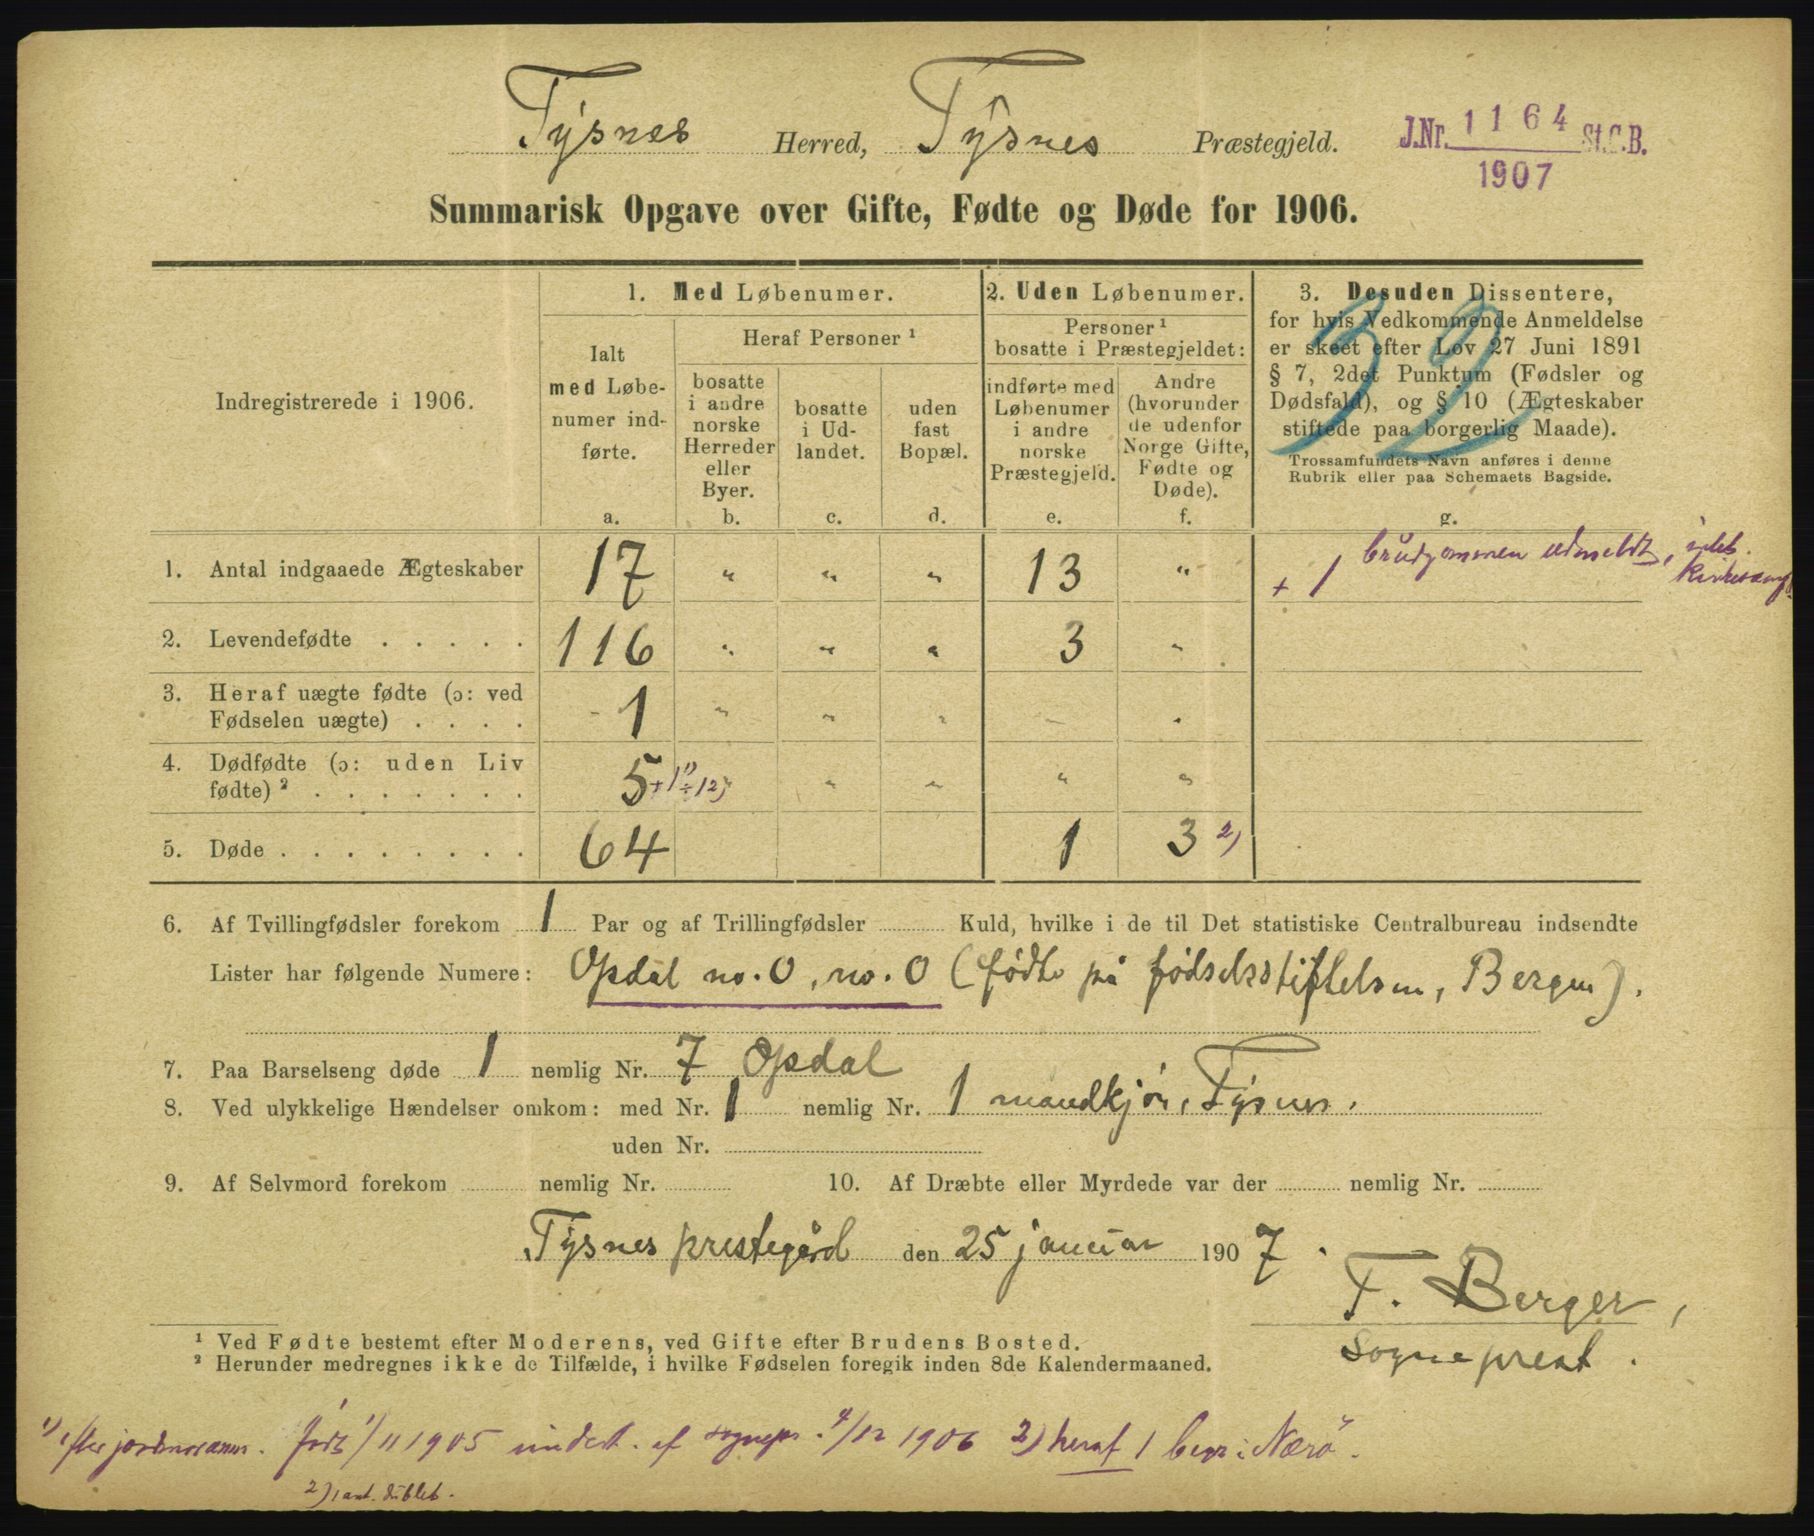 Tysnes Herred, Tysnes Præstegjeld.
J.Nr. 1164 St.C.B.
1907
Summarisk Opgave over Gifte, Fødte og Døde for 1906.
Indregistrerede i 1906.
1. Med Løbenumer.
Ialt med Løbenumer indførte.
a.
Heraf Personer ¹
bosatte i andre norske Herreder eller Byer.
b.
bosatte i Udlandet.
c.
uden fast Bopæl.
d.
2. Uden Løbenumer.
Personer ¹ bosatte i Præstegjeldet:
indførte med Løbenumer i andre norske Præstegjeld.
e.
Andre (hvorunder de udenfor Norge Gifte, Fødte og Døde).
f.
3. Desuden Dissentere,
for hvis Vedkommende Anmeldelse
er skeet efter Lov 27 Juni 1891
§ 7, 2det Punktum (Fødsler og
Dødsfald), og § 10 (Ægteskaber
stiftede paa borgerlig Maade).
Trossamfundets Navn anføres i denne
Rubrik eller paa Schemaets Bagside.
g.
32
1. Antal indgaaede Ægteskaber 17 " " " 13 " + 1 brudgommen udmeldt,
2. Levendefødte . . . . . 116 " " " 3 "
3. Heraf uægte fødte (ɔ: ved
Fødselen uægte) . . . . - 1 " " " - .
4. Dødfødte (ɔ: uden Liv
fødte) ² . . . . . . . 5 + 1 ¹) ÷ 1 2) " " " "
5. Døde . . . . . . . . 64 1 3 2)
6. Af Tvillingfødsler forekom 1 Par og af Trillingfødsler Kuld, hvilke i de til Det statistiske Centralbureau indsendte
Lister har følgende Numere: Opdal no. 0, no. 0 (fødte på fødselsstiftelsen, Bergen).
7. Paa Barselseng døde 1 nemlig Nr. 7 Opdal
8. Ved ulykkelige Hændelser omkom: med Nr. 1 nemlig Nr. 1 mandkjøn, Tysnes.
uden Nr.
9. Af Selvmord forekom nemlig Nr. 10. Af Dræbte eller Myrdede var der nemlig Nr.
Tysnes prestegård den 25 januar 1907.
F. Berger,
Sogneprest.
¹ Ved Fødte bestemt efter Moderens, ved Gifte efter Brudens Bosted.
² Herunder medregnes ikke de Tilfælde, i hvilke Fødselen foregik inden 8de Kalendermaaned.
1) efter jordmoranm. født 1/11 1905 af sognepr. 4/12 1906 2) heraf 1 begr. i Nærø.
2) 1 ant. dublet.